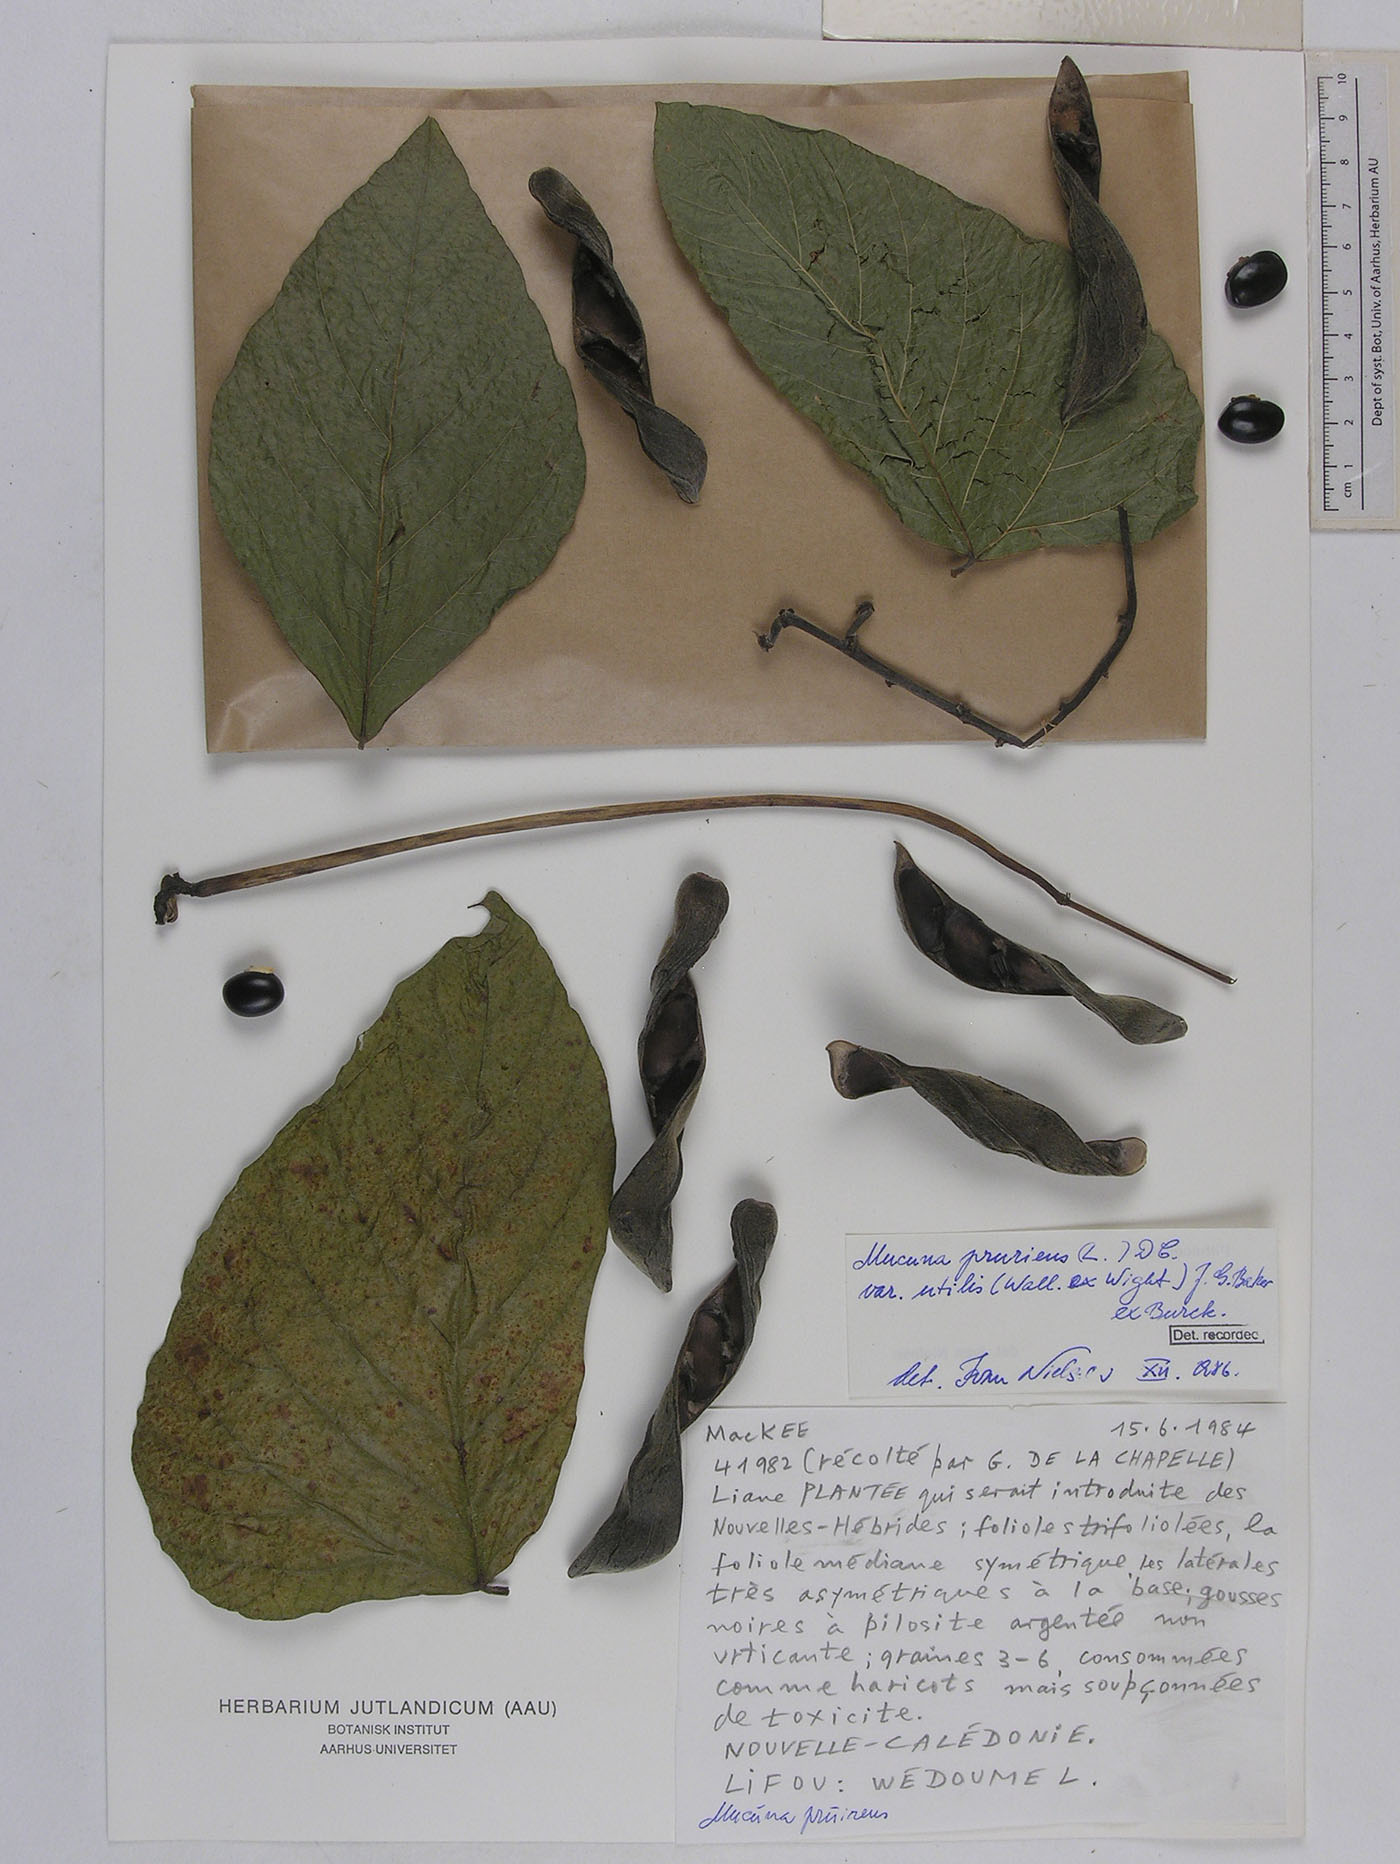 10
9
8
7
6
5
4
3
2
1
cm
Dept of syst. Bot, Univ. of Aarhus, Herbarium AU
Mucuna pruriens (L.) DC.
var. utilis (Wall. ex Wight) J. G. Baker
ex Burck.
Det. recordec
det. Ivan Nielsen XII. 1986.
MacKEE 15.6.1984
41982 (récolté par G. DE LA CHAPELLE)
Liane PLANTÉE qui serait introduite des
Nouvelles-Hébrides ; folioles trifoliolées, la
foliole médiane symétrique, les latérales
très asymétriques à la base; gousses
noires à pilosite argentée non
urticante ; graines 3-6, consommées
comme haricots mais soupçonnées
de toxicite.
NOUVELLE-CALÉDONIE.
LIFOU : WÉDOUMEL.
Mucuna pruriens
HERBARIUM JUTLANDICUM (AAU)
BOTANISK INSTITUT
AARHUS UNIVERSITET